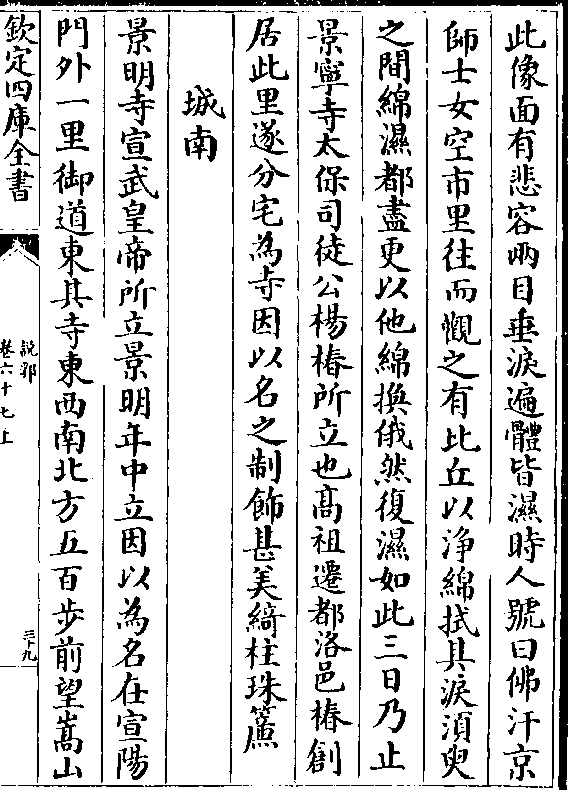 此像面有悲容兩目垂淚遍體皆濕時人號曰佛汗京
師士女空市里往而觀之有比丘以淨綿拭其淚須臾
之間綿濕都盡更以他綿換俄然復濕如此三日乃止
景寧寺太保司徒公楊椿所立也高祖遷都洛邑椿創
居此里遂分宅為寺因以名之制飾甚美綺柱珠簾
城南
景明寺宣武皇帝所立景明年中立因以為名在宣陽
門外一里御道東其寺東西南北方五百步前望嵩山
欽定四庫全書
說郛
卷六十七上
三十九